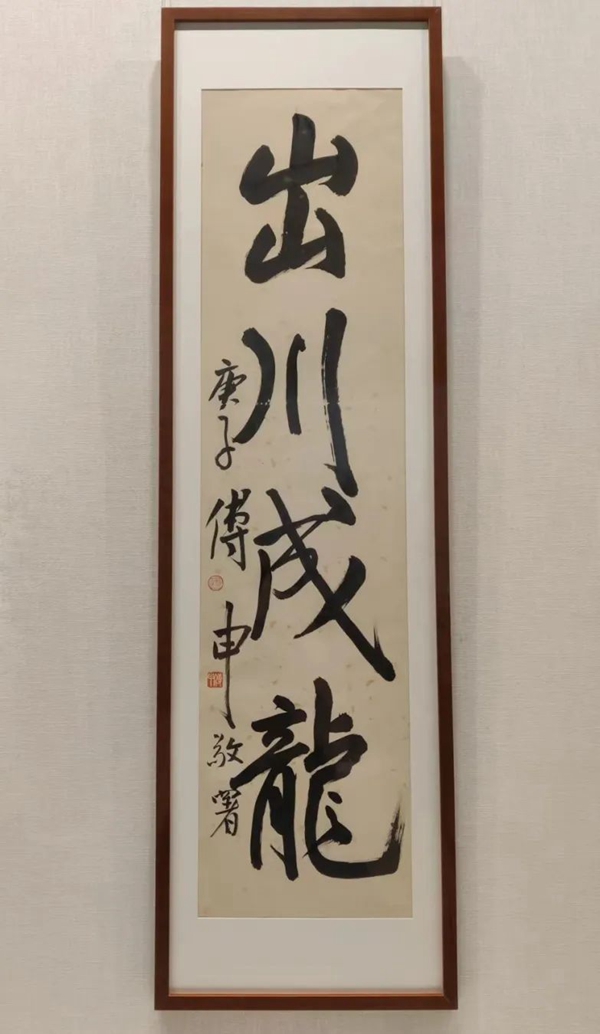 出川成龍
庚子 傅申敬署